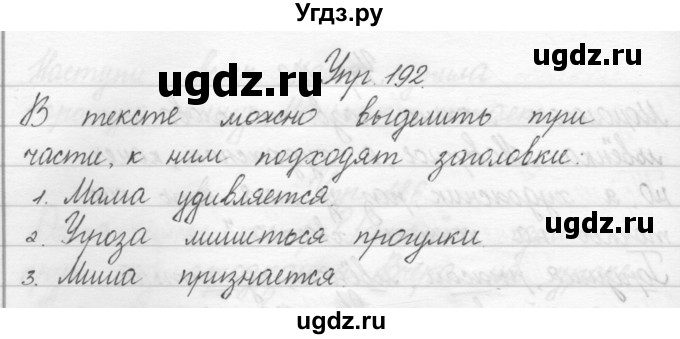 Угдз.ру
Упр. 192.
В тексте можно выделить три
части, к ним подходят заголовки:
1. Мама удивляется.
2. Угроза лишиться прогулки.
3. Миша признается.
ugdz.ru
ugdz.ru
ugdz.ru
ugdz.ru
ugdz.ru
ugdz.ru